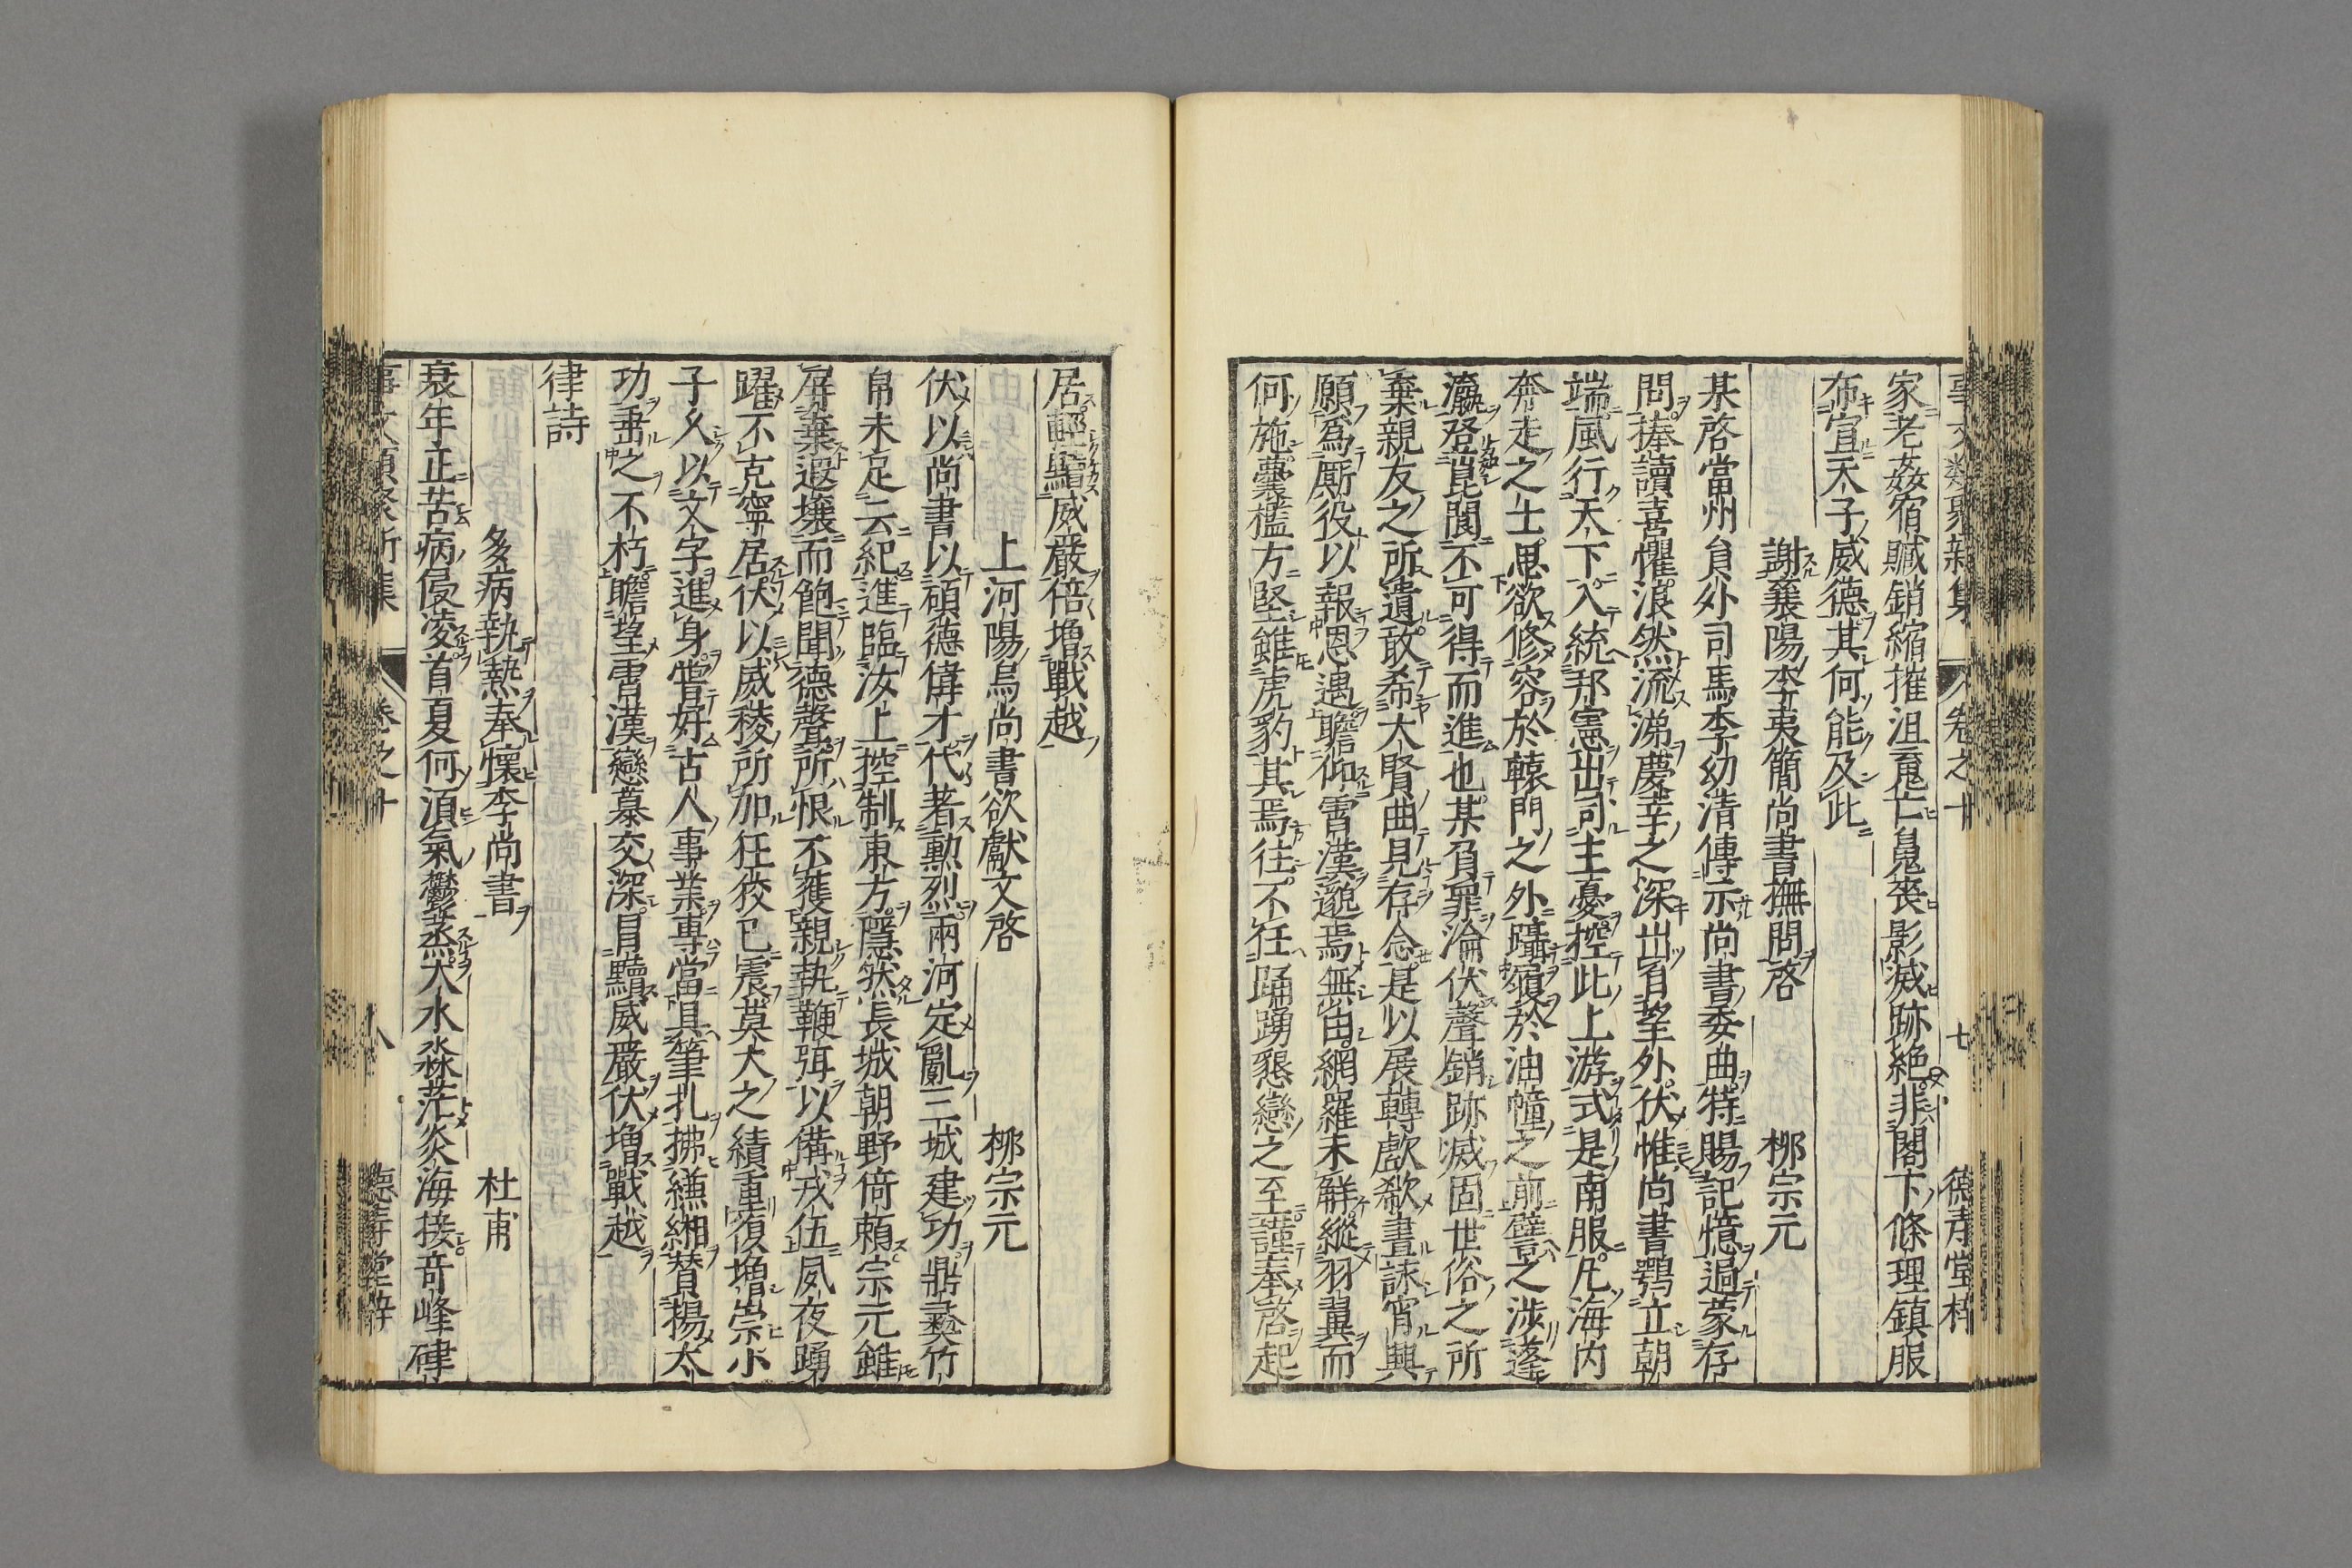 家老姦宿贓銷縮摧沮竄亡鬼喪影滅跡絶非閣下條理鎮服
布宣天子威德其何能及此
謝襄陽李夷簡尚書撫問啓 栁宗元
某啓當州貟外司馬李幼清傳示尚書委曲特賜記憶過蒙存
問捧讀喜懼浪然流涕慶幸之深出自望外伏惟尚書鶚立朝
端風行天下入統邦憲出司主憂控此上游式是南服凢海内
奔走之士思欲修容於轅門之外躡履於油幢之前譬之涉蓬
瀛登崑閬不可得而進也某負罪淪伏聲銷跡滅固世俗之所
棄親友之所遺敢希大賢曲見存念是以展轉歔欷晝詠宵興
願為厮役以報恩遇瞻仰霄漢邈焉無由網羅未解縱羽翼而
何施囊檻方堅雖虎豹其焉往不任踊踴懇戀之至謹奉啓起
居輕黷威嚴倍増戰越
上河陽烏尚書欲獻文啓 栁宗元
伏以尚書以碩德偉才代著勲烈兩河定亂三城建功鼎彝竹
帛未足云紀進臨汝上控制東方隱然長城朝野倚頼宗元雖
屏棄遐壤而飽聞德聲所恨不獲親執鞭弭以備戎伍夙夜踴
躍不克寧居伏以威稜所加狂狡已震莫大之績重復増崇小
子久以文字進身嘗好古人事業專當具筆札拂縑緗賛揚大
功垂之不朽瞻望霄漢戀慕交深冒黷威嚴伏増戰越
律詩
多病執熱奉懐李尚書 杜甫
衰年正苦病侵凌首夏何湏氣鬱蒸大水淼茫炎海接竒峰硉
卷之十 八